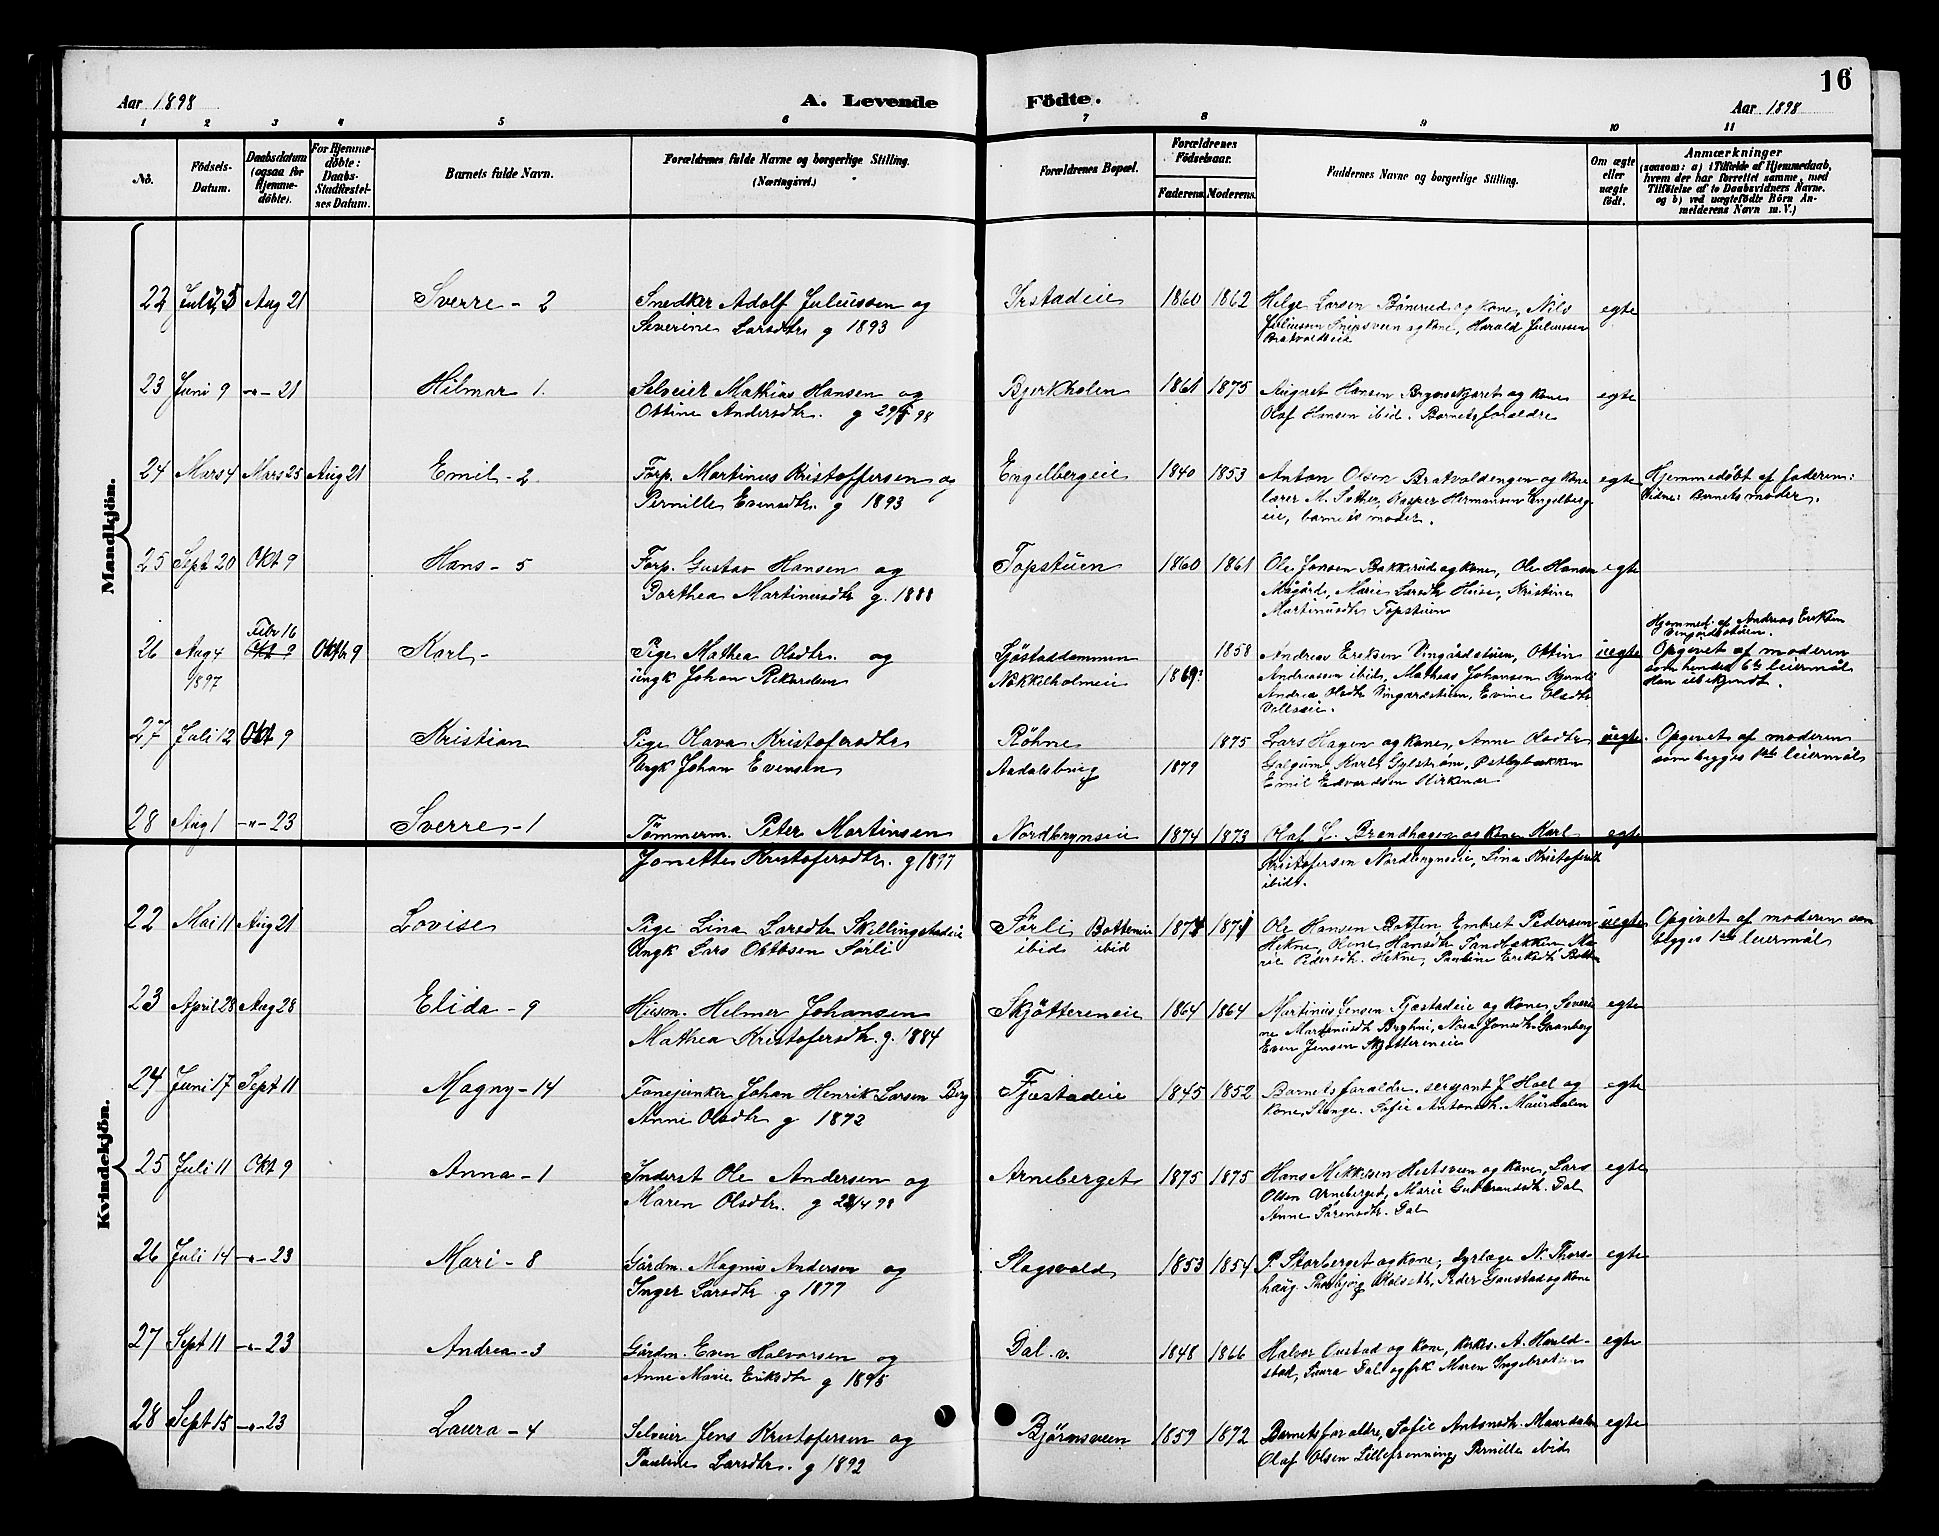 16
Aar 1898
A. Levende Födte.
Aar 1898
1 2 3 4 5 6 7 8 9 10 11
No.
Födsels-Datum.
Daabsdatum (ogsaa for Hjemme-döbte).
For Hjemme-döbte: Daabs-Stadfæstel-ses Datum.
Barnets fulde Navn.
Forældrenes fulde Navne og borgerlige Stilling. (Næringsvei.)
Forældrenes Bopæl.
Forældrenes Födselsaar.
Faderens. Moderens.
Faddernes Navne og borgerlige Stilling.
Om ægte eller uægte födt.
Anmærkninger
(saasom: a) i Tilfælde af Hjemmedaab, hvem der har forrettet samme, med Tilföielse af to Daabsvidners Navne. og b) ved uægtefödte Börn An-melderens Navn m. V.)
Mandkjön.
22 Juli 25 Aug 21 Sverre - 2 Snedker Adolf Juliussen og Irstadeie 1860 1862 Helge Larsen Bånerud og kone, Nils egte
Severine Larsdtr g 1893 Juliussen Snipsveen og kone, Harald Juliussen
Bratvoldeie
23 Juni 9 -"- 21 Hilmar 1. Selveier Mathias Hansen og Bjerkholen 1861 1875 August Hansen og kone egte
Ottine Andersdtr. g 98 Olaf Hansen ibid. Barnets forældre
24 Mars 4 Mars 25 Aug 21 Emil - 2 Forp. Martinus Kristoffersen og Engelbergeie 1840 1853 Anton Olsen Bratvoldengen og kone egte Hjemmedøbt af faderen:
Pernille Evensdtr. g 1893 lærer M. Sæther, Kasper Hermansen Engelberg- Vidne: Barnets moder.
eie, barnets moder.
25 Sept 20 Okt 9 Hans - 5 Forp. Gustav Hansen og Topstuen 1860 1861 Ole Jonsen Bakkerud og kone, Ole Hansen egte
Dorthea Martinusdtr g. 1888 Marie Larsdtr Huse, Kristine
Martinusdtr Topstuen
Febr 16 Hjemmed. af Andreas Eriksen
26 Aug 4 Okt 9 Oktbr 9 Karl - Pige Mathea Olsdtr. og Sjøstaddammen 1858 Andreas Eriksen Vingårdstuen, Ottin uegte Opgivet af moderen
1897 ungk Johan Rikardsen Nøkkelholmeie 1869? Andreassen ibid, Mathias Johansen som hendes 6te leiermål
Andrea Olsdtr Vingårdstuen, Evine Olsdtr Han ubekjendt.
27 Juli 12 Okt 9 Kristian Pige Olava Kristofersdtr Røhne 1875 Lars Hagen og kone, Anne Olsdtr uegte. Opgivet af moderen
Ungk Johan Evensen Aadalsbrug 1879 Galgum, Karl Gylstrøm, som begges 1ste leiermål
Emil Edvardsen Kirkenær
28 Aug 1 -"- 23 Sverre - 1 Tømmerm. Peter Martinsen Nordbrynseie 1874 1873 Olaf L. Brandhagen og kone Karl egte
Jonette Kristofersdtr. g 1897 Kristofersen Nordbrynseie, Lina Kristofersdtr
ibidt.
Kvindekjön.
22 Mai 11 Aug 21 Lovise Pige Lina Larsdtr Skillingstadeie Sørli Botteneie 1871 1871 Ole Hansen Botten Embret Pedersen uegte Opgivet af moderen som
Ungk Lars Ottosen Sørli ibid ibid Hekne, Olene Hansdtr Sandbakken, Ma- begges 1ste leiermål
rie Pedersdtr. Hekne, Pauline Eriksdtr Botten
23 April 28 Aug 28 Elida - 9 Husm. Helmer Johansen Skjøttereneie 1864 1864 Martinus Jensen Fjæstadeie og kone, Severi- egte
Mathea Kristofersdtr. g. 1884 ne Martinusdtr Berghus, Nora Jonsdtr. Granberg
Even Jensen Skjøttereneie
24 Juni 17 Sept 11 Magny - 14 Fanejunker Johan Henrik Larsen Berg Fjæstadeie 1845 1852 Barnets forældre. serjant J Hoel og egte
Anne Olsdtr g 1872 kone, Stange. Sofie Antonsdtr. Maurdalen
25 Juli 11 Okt 9 Anna - 1 Inderst Ole Andersen og Arneberget 1875 1875 Hans Mikkelsen Hestsveen og kone, Lars egte
Maren Olsdtr. g 28/4 98 Olsen Arneberget, Marie Gulbrandsdtr. Dal
Anne Sørensdtr. Dal
26 Juli 14 -"- 23 Mari - 8 Gårdm. Magnus Andersen og Slagsvold 1853 1854 P. Storberget og kone, dyrlæge N. Thors- egte
Inger Larsdtr g 1877 haug, Peder Gaustad og kone
27 Sept 11 -"- 23 Andrea - 3 Gårdm. Even Halvorsen og Dal. v. 1848 1866 Halvor Oustad og kone, kirkes. A. Harald- egte
Anne Marie Eriksdtr g 1895 stad, Laura Dal og frk Maren Ingebretsen
28 Sept 15 -"- 23 Laura - 4 Selveier Jens Kristofersen og Bjørnsveen 1859 1872 Barnets forældre, Sofie Antonsdtr. Maurdalen egte
Pauline Larsdtr. g 1892 Olaf Olsen Lillefrenning, Pernille ibid